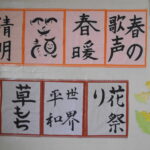 春の
歌声
春暖
笑顔
清明
花祭
り
世界
平和
草もち